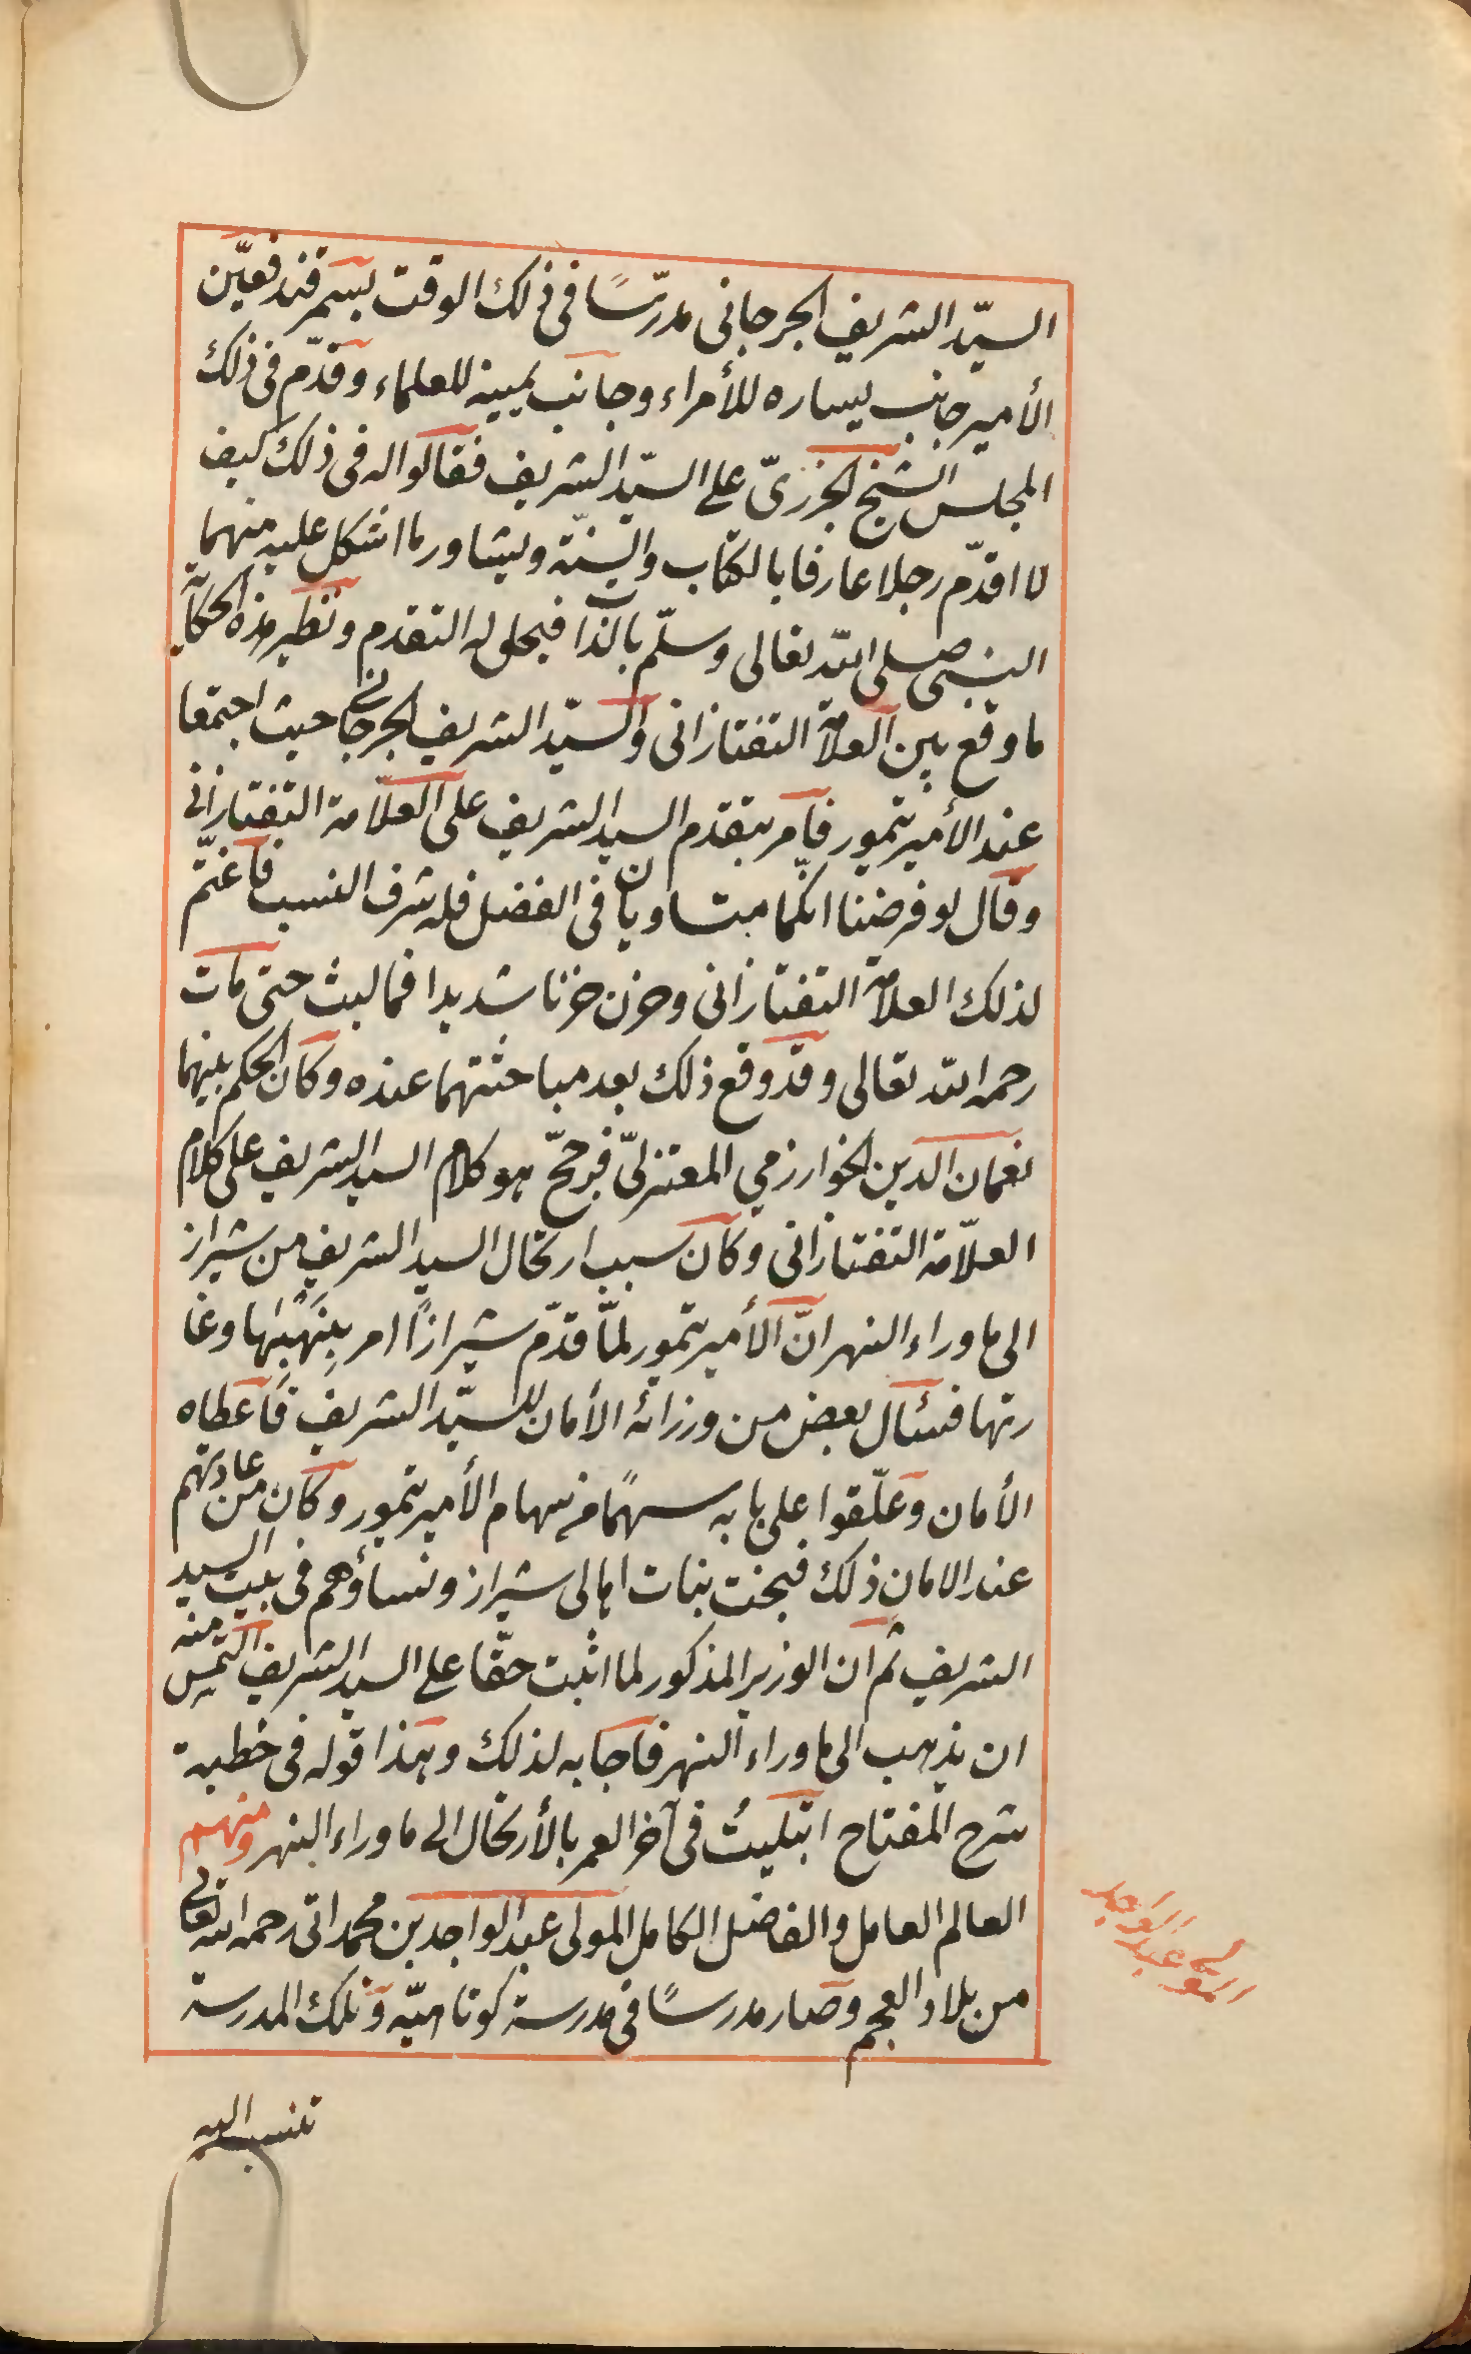 السيّد الشريف الجرجانى مدرّسًا فى ذلك الوقت بسمرقند فعيّن
الأمير جانب يساره للأمراء وجانب يمينه للعلماء وقدّم فى ذلك
المجلس الشيخ الجزرىّ على السيّد الشريف فقالوا له فى ذلك كيف
لا اقدّم رجلا عارفا بالكتاب والسنّة ويشاور ما اشكل عليه منهما
النبى صلى الله تعالى وسلّم بالذات فيحل له التقدم ونظير هذه الحكاية
ما وقع بين العلامة التفتازانى والسيّد الشريف الجرجانى حيث اجتمعا
عند الأمير تيمور فأمر بتقدم السيد الشريف على العلّامة التفتازانى
وقال لو فرضنا انكما متساويان فى الفضل فله شرف النسب فاغتمّ
لذلك العلامة التفتازانى وحزن حزنا شديدا فما لبث حتى مات
رحمه الله تعالى وقد وقع ذلك بعد مباحثتهما عنده وكان الحكم بينهما
نعمان الدين الخوارزمي المعتزلىّ فرجّح هو كلام السيد الشريف على كلام
العلّامة التفتازانى وكان سبب ارتحال السيد الشريف من شيراز
الى ماوراء النهر انّ الأمير تيمور لمّا قدّم شيرازًا امر بنهبها وغا
رتها فسئال بعض من وزرائه الأمان للسيّد الشريف فاعطاه
الأمان وعلّقوا على بابه سهمًا من سهام الأمير تيمور وكان من عادتهم
عند الامان ذلك فبخت بنات اهالى شيراز ونساؤهم فى بيت السيد
الشريف ثم ان الوزير المذكور لما اثبت حقّا على السيد الشريف التمس منه
ان يذهب الى ماوراء النهر فاجابه لذلك وهذا قوله فى خطبة
شرح المفتاح ابتليتُ فى آخر العمر بالأرتحال الى ماوراء النهر ومنهم
العالم العامل والفاضل الكامل المولى عبد الواجد بن محمد اتى رحمه الله تعالى
من بلاد العجم وصار مدرسًا فى مدرسة كوتاهيّه وتلك المدرسة
المولى عبد الواجد
تنسب اليه